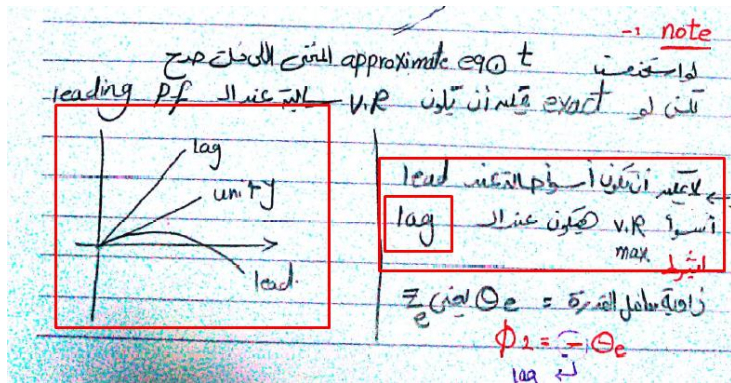 note -1
لو استخدمت approximate eqn t المنحنى اللى فات صح
لكن لو exact يمكن أن تكون V.R سالبة عند الـ leading Pf
lag
unity
lead
لا يمكن أن تكون أسوأ حالة عند lead
أسوأ V.R هيكون عند الـ lag
max
زاوية معامل القدرة = θe يعنى Ze
ϕ2 = - θe
lag